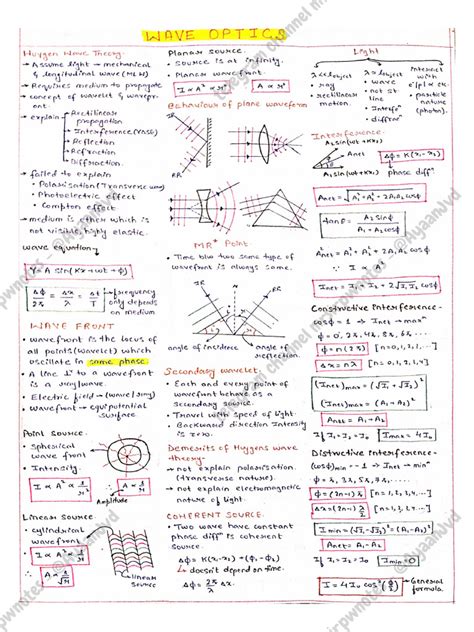 WAVE OPTICS
Huygen Wave Theory:-
→ Assume light → mechanical
& longitudinal wave (MLW)
→ Requires medium to propagate
→ concept of wavelet & wavefront
→ explain
Rectilinear propagation
Interference (YDSE)
Reflection
Refraction
Diffraction.
→ failed to explain
• Polarisation (Transverse wave)
• Photoelectric effect
• Compton effect
→ medium is ether which is
not visible, highly elastic.
wave equation →
Y = A sin(Kx + wt + ϕ)
Δϕ/2π = Δx/λ = Δt/T
frequency
only depends
on medium
WAVE FRONT
• wavefront is the locus of
all points (wavelet) which
oscillate in same phase.
• A line ⊥ to a wavefront
is a ray/wave.
• Electric field →
• Wavefront → equipotential
surface
Point source:
• Spherical
wave front
• Intensity.
I ∝ A² ∝ 1/r²
Amplitude
Linear source
• cylindrical
wavefront
I ∝ A² ∝ 1/r
A ∝ 1/√r
linear
source
Planar source.
• source is at infinity.
• Planar wavefront.
I ∝ A² ∝ r⁰
A ∝ r⁰
Behaviour of plane waveform
MR* Point
• Time b/w two same type of
wavefront is always same.
IR
RR
angle of incidence
angle of reflection.
Secondary wavelet:
• Each and every point of
wavefront behave as a
secondary source.
• Travel with speed of light.
• Backward direction Intensity
is zero.
Demerits of Huygens wave
theory-
→ not explain polarisation
(transverse nature).
→ not explain electromagnetic
nature of light.
COHERENT SOURCE.
• Two wave have constant
phase diffⁿ is coherent
source.
Δϕ = K(x₁-x₂) + (ϕ₁-ϕ₂)
↳ doesn't depend on time.
Δϕ = 2π/λ Δx
Light
• ray
• rectilinear
motion.
• wave
• not st
line
• Interfⁿ
• diffracⁿ
interact
with
• particle
nature
(photon).
Interference:
A₂ sin(wt + Kx₂)
A₁ sin(wt + Kx₁)
Δϕ = K(x₁-x₂)
phase diffⁿ
Anet = √A₁² + A₂² + 2A₁A₂ cosϕ
Anet² = A₁² + A₂² + 2A₁A₂ cosϕ
∵ I ∝ A²
Inet = I₁ + I₂ + 2√I₁I₂ cosϕ
Constructive interference-
cosϕ = 1 → Inet → max
ϕ = 0, 2π, 4π, 6π, 8π...
ϕ = n(2π) [n=0,1,2,...]
Δx = nλ [n = 0,1,2,3,4]
(Inet)max = (√I₁ + √I₂)²
(Anet)max = (A₁ + A₂)
If I₁ = I₂ = I₀ Imax = 4I₀
Distructive interference-
(cosϕ)min = -1 → Inet → minⁿ
ϕ = π, 3π, 5π, 7π...
ϕ = (2n-1)π [n = 1,2,3,4,...]
Δx = (2n-1)λ/2 [n = 1,2,3,...]
Imin = (√I₁ - √I₂)² = (A₁ - A₂)²
Anet = A₁ - A₂
If I₁ = I₂ = I₀ Imin = 0
I = 4I₀ cos²(ϕ/2)
General
formula.